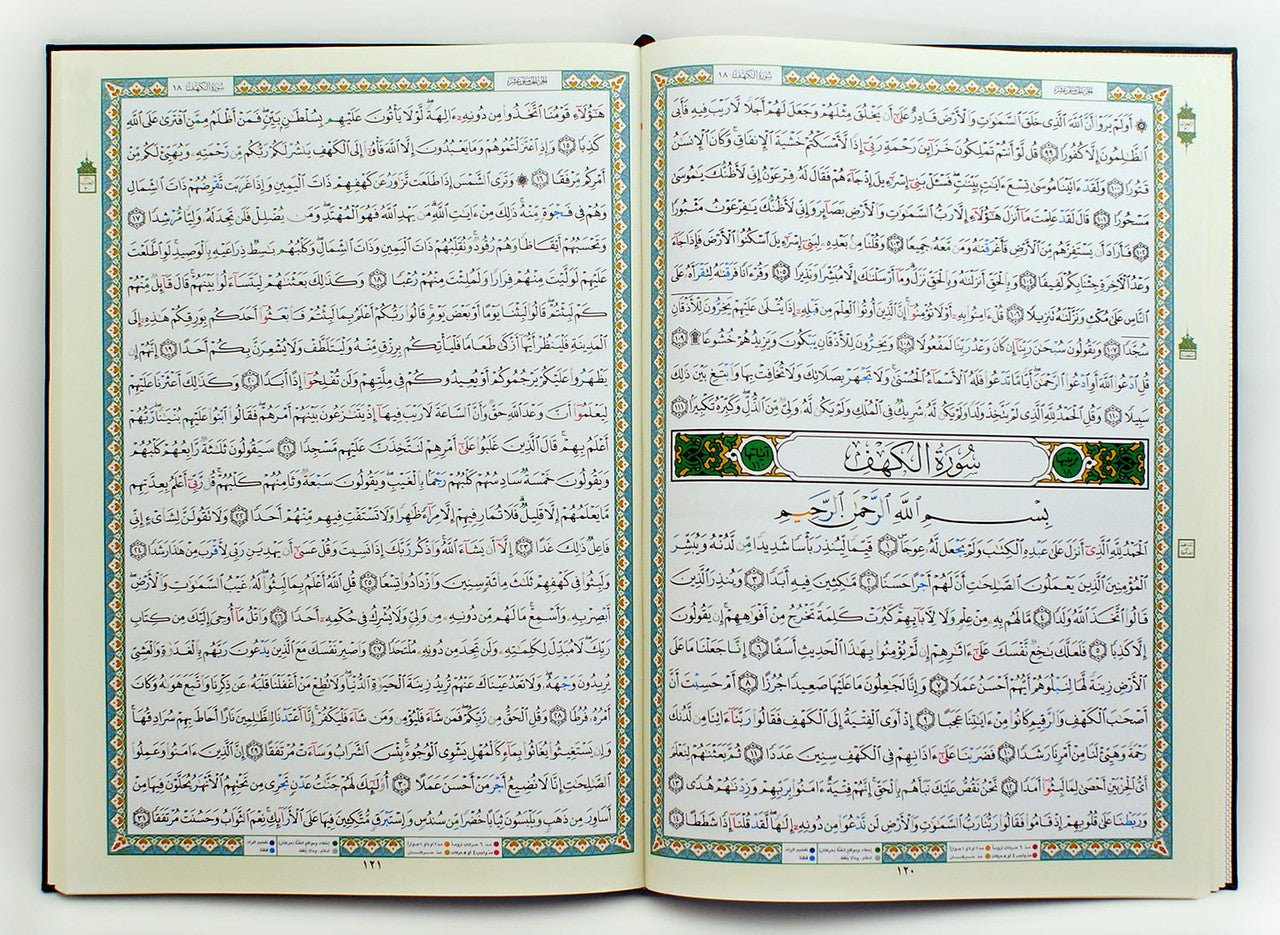 سورة الكهف ١٨
الجزء الخامس عشر
۞ أولم يروا أن الله الذي خلق السموت والأرض قادر على أن يخلق مثلهم وجعل لهم أجلا لا ريب فيه فأبى
الظلمون إلا كفورا ٩٩ قل لو أنتم تملكون خزائن رحمة ربي إذا لأمسكتم خشية الإنفاق وكان الإنسن
قتورا ١٠٠ ولقد ءاتينا موسى تسع ءايت بينت فسئل بني إسرءيل إذ جاءهم فقال له فرعون إني لأظنك يموسى
مسحورا ١٠١ قال لقد علمت ما أنزل هؤلاء إلا رب السموت والأرض بصائر وإني لأظنك يفرعون مثبورا
١٠٢ فأراد أن يستفزهم من الأرض فأغرقنه ومن معه جميعا ١٠٣ وقلنا من بعده لبني إسرءيل اسكنوا الأرض فإذا جاء
وعد الأخرة جئنا بكم لفيفا ١٠٤ وبالحق أنزلنه وبالحق نزل وما أرسلنك إلا مبشرا ونذيرا ١٠٥ وقرءانا فرقنه لتقرأه على
الناس على مكث ونزلنه تنزيلا ١٠٦ قل ءامنوا به أو لا تؤمنوا إن الذين أوتوا العلم من قبله إذا يتلى عليهم يخرون للأذقان
سجدا ١٠٧ ويقولون سبحن ربنا إن كان وعد ربنا لمفعولا ١٠٨ ويخرون للأذقان يبكون ويزيدهم خشوعا ۩ ١٠٩
قل ادعوا الله أو ادعوا الرحمن أيا ما تدعوا فله الأسماء الحسنى ولا تجهر بصلاتك ولا تخافت بها وابتغ بين ذلك
سبيلا ١١٠ وقل الحمد لله الذي لم يتخذ ولدا ولم يكن له شريك في الملك ولم يكن له ولي من الذل وكبره تكبيرا ١١١
ترتيبها ١٨ سورة الكهف آياتها ١١٠
بسم الله الرحمن الرحيم
الحمد لله الذي أنزل على عبده الكتب ولم يجعل له عوجا ١ قيما لينذر بأسا شديدا من لدنه ويبشر
المؤمنين الذين يعملون الصلحت أن لهم أجرا حسنا ٢ مكثين فيه أبدا ٣ وينذر الذين
قالوا اتخذ الله ولدا ٤ ما لهم به من علم ولا لأبائهم كبرت كلمة تخرج من أفوههم إن يقولون
إلا كذبا ٥ فلعلك بخع نفسك على ءاثرهم إن لم يؤمنوا بهذا الحديث أسفا ٦ إنا جعلنا ما على
الأرض زينة لها لنبلوهم أيهم أحسن عملا ٧ وإنا لجعلون ما عليها صعيدا جرزا ٨ أم حسبت أن
أصحب الكهف والرقيم كانوا من ءايتنا عجبا ٩ إذ أوى الفتية إلى الكهف فقالوا ربنا ءاتنا من لدنك
رحمة وهيئ لنا من أمرنا رشدا ١٠ فضربنا على ءاذانهم في الكهف سنين عددا ١١ ثم بعثنهم لنعلم
أي الحزبين أحصى لما لبثوا أمدا ١٢ نحن نقص عليك نبأهم بالحق إنهم فتية ءامنوا بربهم وزدنهم هدى ١٣
وربطنا على قلوبهم إذ قاموا فقالوا ربنا رب السموت والأرض لن ندعوا من دونه إلها لقد قلنا إذا شططا ١٤
١٢٠
سورة الكهف ١٨
الجزء الخامس عشر
هؤلاء قومنا اتخذوا من دونه ءالهة لولا يأتون عليهم بسلطن بين فمن أظلم ممن افترى على الله
كذبا ١٥ وإذ اعتزلتموهم وما يعبدون إلا الله فأوا إلى الكهف ينشر لكم ربكم من رحمته ويهيئ لكم من
أمركم مرفقا ١٦ ۞ وترى الشمس إذا طلعت تزور عن كهفهم ذات اليمين وإذا غربت تقرضهم ذات الشمال
وهم في فجوة منه ذلك من ءايت الله من يهد الله فهو المهتد ومن يضلل فلن تجد له وليا مرشدا ١٧
وتحسبهم أيقاظا وهم رقود ونقلبهم ذات اليمين وذات الشمال وكلبهم بسط ذراعيه بالوصيد لو اطلعت
عليهم لوليت منهم فرارا ولملئت منهم رعبا ١٨ وكذلك بعثنهم ليتساءلوا بينهم قال قائل منهم
كم لبثتم قالوا لبثنا يوما أو بعض يوم قالوا ربكم أعلم بما لبثتم فابعثوا أحدكم بورقكم هذه إلى
المدينة فلينظر أيها أزكى طعاما فليأتكم برزق منه وليتلطف ولا يشعرن بكم أحدا ١٩ إنهم إن
يظهروا عليكم يرجموكم أو يعيدوكم في ملتهم ولن تفلحوا إذا أبدا ٢٠ وكذلك أعثرنا عليهم
ليعلموا أن وعد الله حق وأن الساعة لا ريب فيها إذ يتنزعون بينهم أمرهم فقالوا ابنوا عليهم بنينا ربهم
أعلم بهم قال الذين غلبوا على أمرهم لنتخذن عليهم مسجدا ٢١ سيقولون ثلثة رابعهم كلبهم
ويقولون خمسة سادسهم كلبهم رجما بالغيب ويقولون سبعة وثامنهم كلبهم قل ربي أعلم بعدتهم
ما يعلمهم إلا قليل فلا تمار فيهم إلا مراء ظهرا ولا تستفت فيهم منهم أحدا ٢٢ ولا تقولن لشاىء إني
فاعل ذلك غدا ٢٣ إلا أن يشاء الله واذكر ربك إذا نسيت وقل عسى أن يهدين ربي لأقرب من هذا رشدا ٢٤
ولبثوا في كهفهم ثلث مائة سنين وازدادوا تسعا ٢٥ قل الله أعلم بما لبثوا له غيب السموت والأرض
أبصر به وأسمع ما لهم من دونه من ولي ولا يشرك في حكمه أحدا ٢٦ واتل ما أوحي إليك من كتاب
ربك لا مبدل لكلمته ولن تجد من دونه ملتحدا ٢٧ واصبر نفسك مع الذين يدعون ربهم بالغدوة والعشي
يريدون وجهه ولا تعد عيناك عنهم تريد زينة الحيوة الدنيا ولا تطع من أغفلنا قلبه عن ذكرنا واتبع هوىه وكان
أمره فرطا ٢٨ وقل الحق من ربكم فمن شاء فليؤمن ومن شاء فليكفر إنا أعتدنا للظلمين نارا أحاط بهم سرادقها
وإن يستغيثوا يغاثوا بماء كالمهل يشوي الوجوه بئس الشراب وساءت مرتفقا ٢٩ إن الذين ءامنوا وعملوا
الصلحت إنا لا نضيع أجر من أحسن عملا ٣٠ أولئك لهم جنت عدن تجري من تحتهم الأنهر يحلون فيها من
أساور من ذهب ويلبسون ثيابا خضرا من سندس وإستبرق متكئين فيها على الأرائك نعم الثواب وحسنت مرتفقا ٣١
١٢١